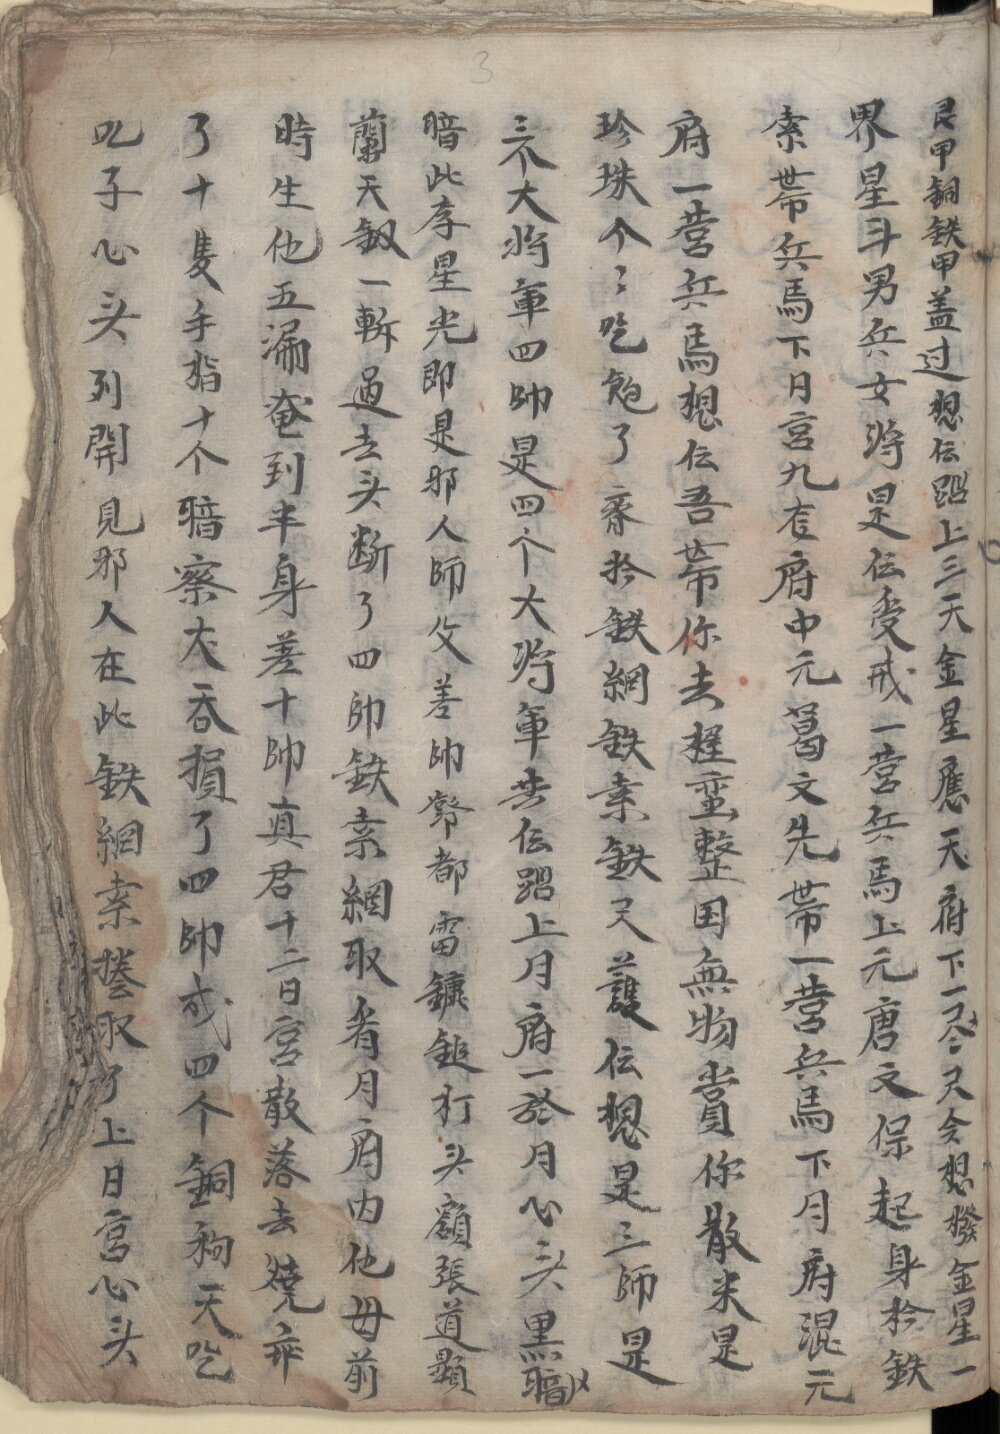 3
艮甲銅鉄甲盖过想伝踀上三天金星應天府下一尽又会想撥金星一
界星斗男兵女将是伝受戒一营兵馬上元唐文保起身扵鉄
索帶兵馬下日宮九在府中元葛文先帶一营兵馬下月府混元
府一营兵馬想伝吾帶你去捏蛮整国無物賞你散米是
珍珠个〻吃飽了齐扵鉄網鉄索鉄又護伝想是三師是
三个大將軍四帥是四个大将軍共伝踀上月府一於月心头黒暗
暗此孛星光即是邪人師父差帥鄧都雷鑣鎚打头額張道顕
蘭天釼一斬過去头断了四帅鉄索網取看月府内他母前
時生他五漏奄到半身差十帅真君十二日宮散落去燒弃
了十隻手指十个暗察大吞損了四帅戎四个銅狗一天吃
吃子心头列開見邪人在此鉄網索捲取了上日宮心头